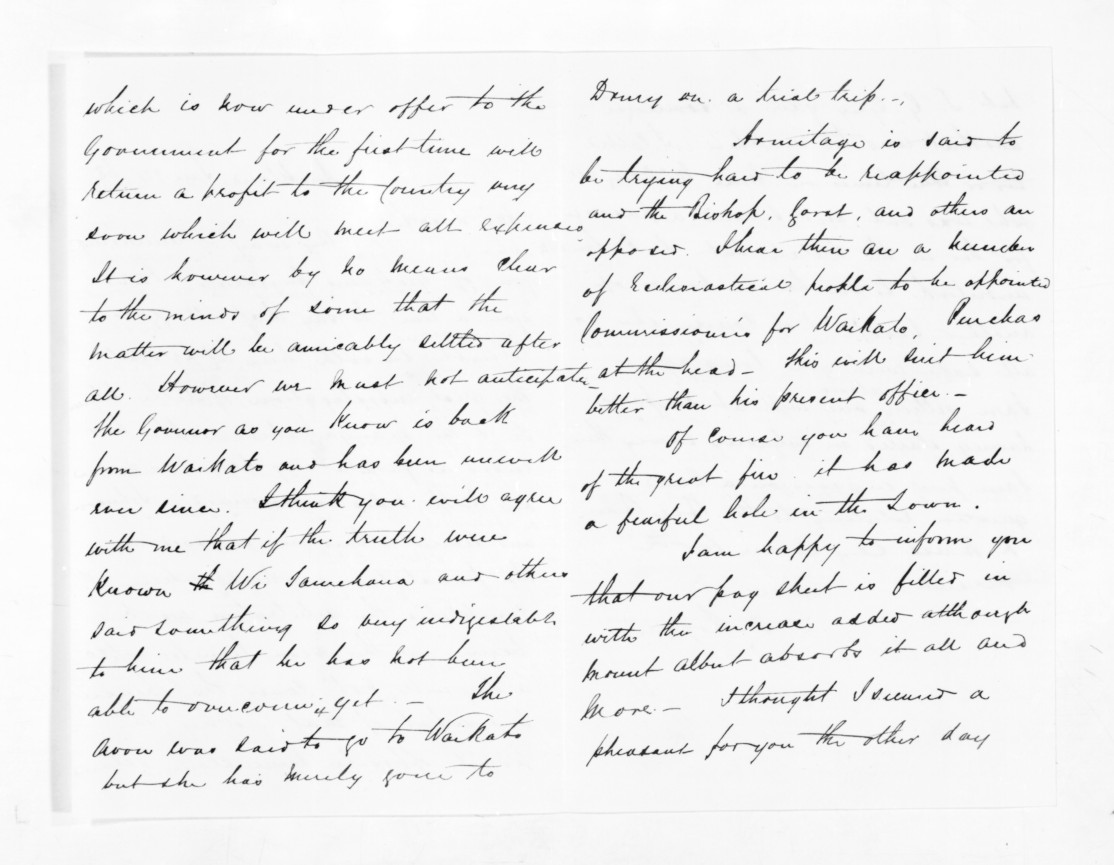 which is now under offer to the
Government for the first time will
return a profit to the Country very
soon which will meet all expenses
It is however by no means clear
to the minds of some that the
matter will be amicably settled after
all. However we must not anticipate_
the Governor as you know is back
from Waikato and has been unwell
ever since. I think you will agree
with me that if the truth were
known th Wi Tamehana and others
said something so very indigestable
to him that he has not been
able to overcome it yet. — The
Avon was said to go to Waikato
but she has merely gone to
Drury on a trial trip. —
Armitage is said to
be trying hard to be reappointed
and the Bishop, Gorst, and others are
opposed. I hear there are a number
of Ecclesiastical people to be appointed
Commissioners for Waikato, Purchas
at the head — this will suit him
better than his present office. —
Of course you have heard
of the great fire it has made
a fearful hole in the Town.
I am happy to inform you
that our pay sheet is filled in
with the increase added although
Mount Albert absorbs it all and
more. — I thought I secured a
pheasant for you the other day